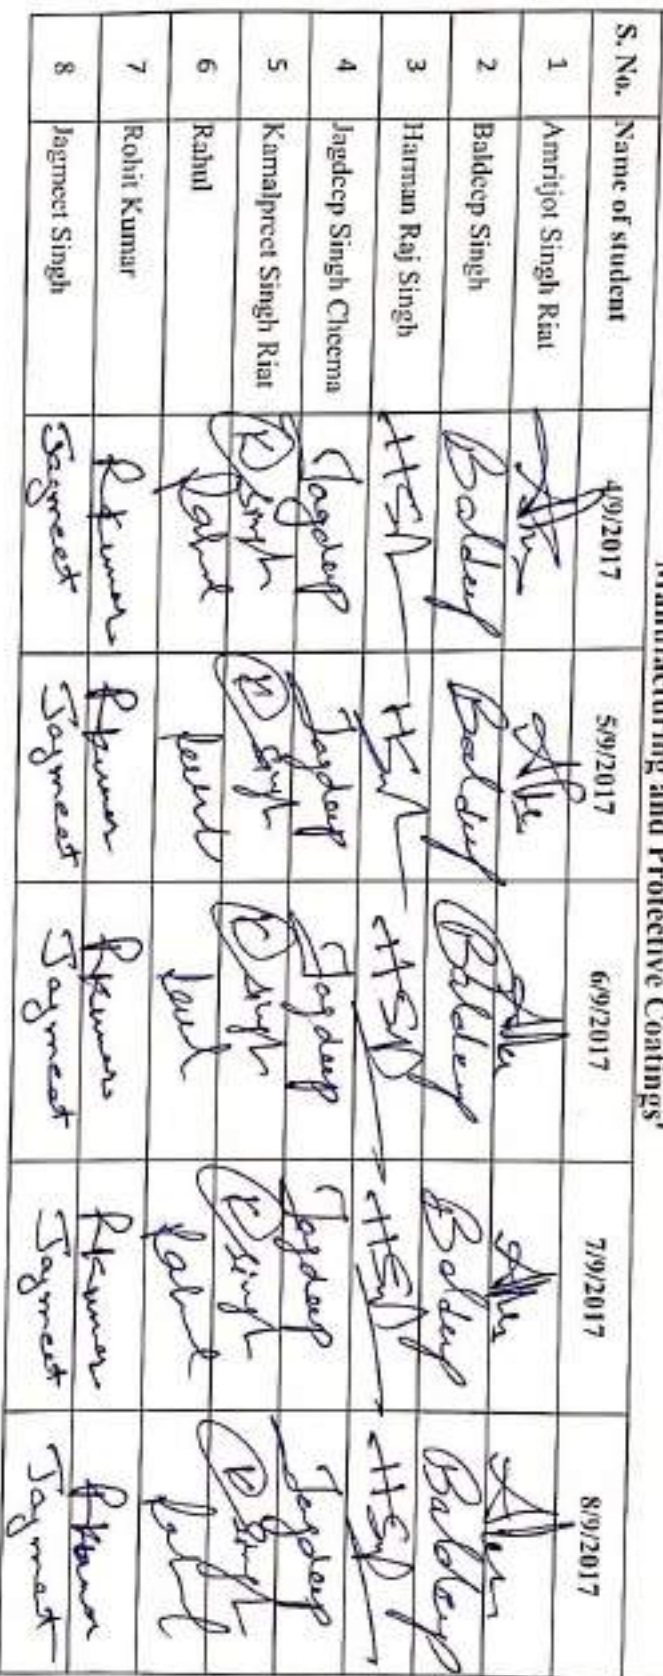 Manufacturing and Protective Coatings'
S. No. Name of student 4/9/2017 5/9/2017 6/9/2017 7/9/2017 8/9/2017
1 Amritjot Singh Riat
2 Baldeep Singh Baldeep Baldeep Baldeep Baldeep Baldeep
3 Harman Raj Singh
4 Jagdeep Singh Cheema Jagdeep Jagdeep Jagdeep Jagdeep Jagdeep
5 Kamalpreet Singh Riat K Singh K Singh K Singh K Singh K Singh
6 Rahul Rahul Rahul Rahul
7 Rohit Kumar RKumar RKumar RKumar RKumar RKumar
8 Jagmeet Singh Jagmeet Jagmeet Jagmeet Jagmeet Jagmeet